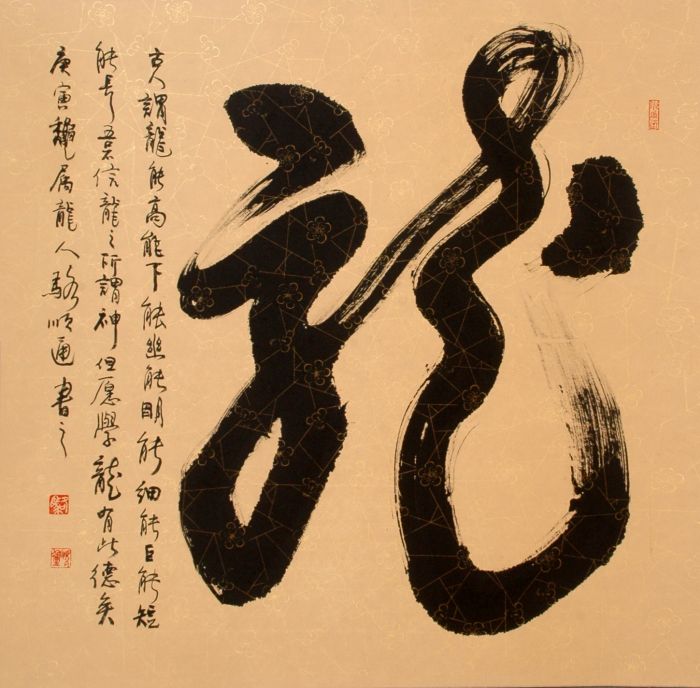 龍
古人謂龍能高能下能幽能明能細能巨能短
能長吾信龍之所謂神但愿學龍有此德矣
庚寅龝属龍人駱順通書之